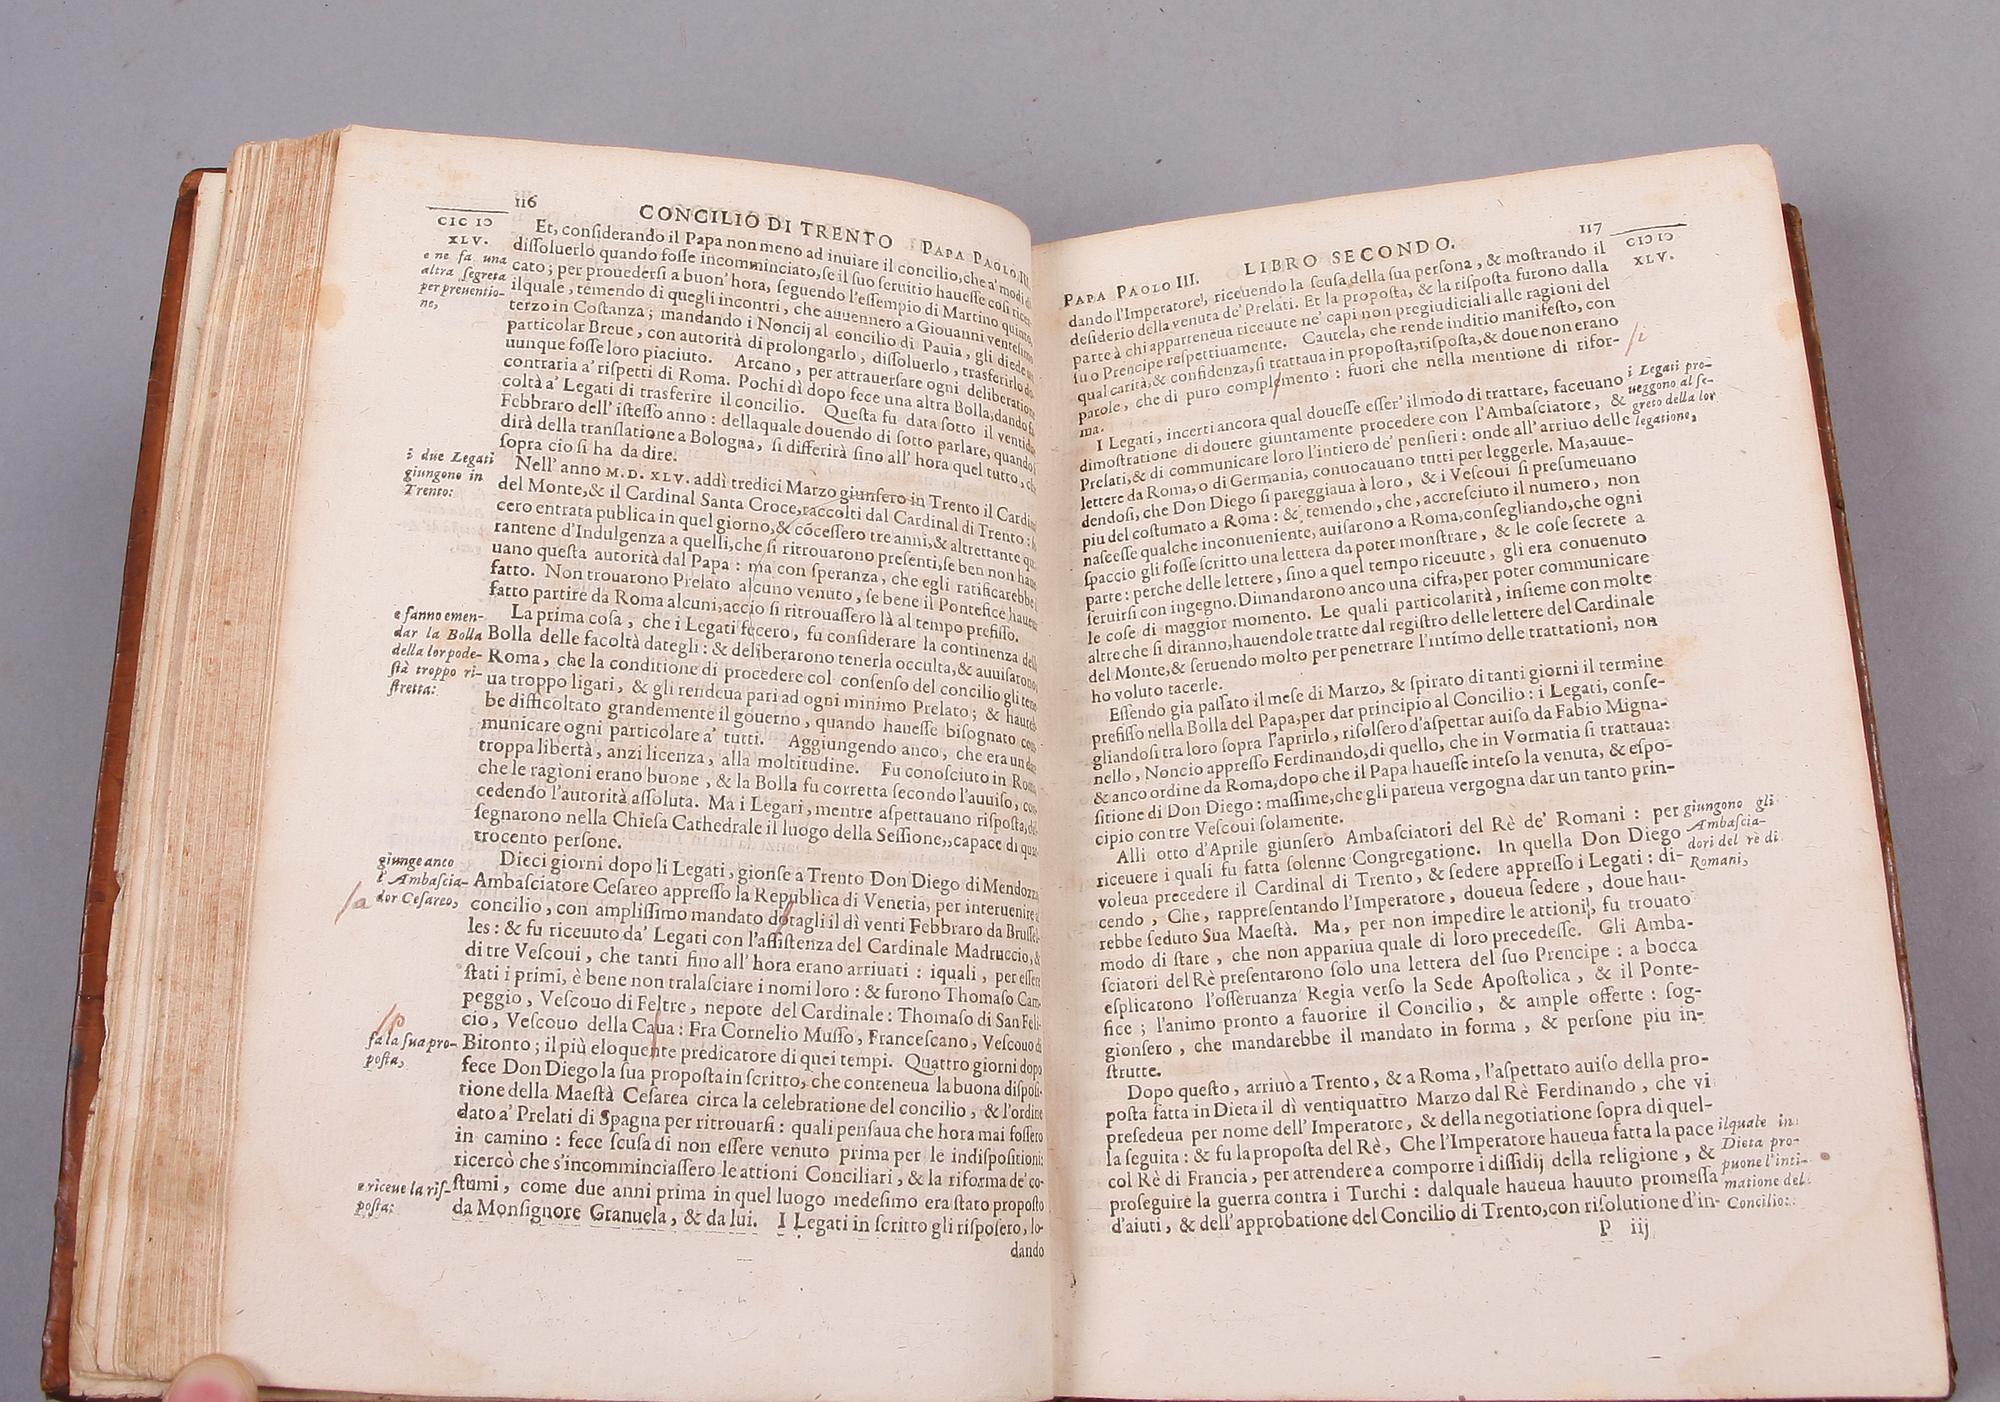 116
CONCILIO DI TRENTO PAPA PAOLO III.
CIC IↃ
XLV.
e ne fa una
altra ſegreta
per preuentio-
ne,
Et, conſiderando il Papa non meno ad inuiare il concilio, che a' modi di
diſſoluerlo quando foſſe incomminciato, ſe il ſuo ſeruitio haueſſe coſi ricer-
cato; per prouederſi a buon' hora, ſeguendo l'eſſempio di Martino quinto,
ilquale, temendo di quegli incontri, che auuennero a Giouanni venteſimo
terzo in Coſtanza; mandando i Noncij al concilio di Pauia, gli diede un
particolar Breue, con autorità di prolongarlo, diſſoluerlo, trasferirlo do-
uunque foſſe loro piaciuto. Arcano, per attrauerſare ogni deliberatione
contraria a' riſpetti di Roma. Pochi dì dopo fece una altra Bolla, dando fa
coltà a' Legati di trasferire il concilio. Queſta fu data ſotto il ventidue
Febbraro dell' iſteſſo anno: dellaquale douendo di ſotto parlare, quando ſi
dirà della tranſlatione a Bologna, ſi differirà ſino all' hora quel tutto, che
ſopra cio ſi ha da dire.
i due Legati
giungono in
Trento:
Nell' anno M.D. XLV. addì tredici Marzo giunſero in Trento il Cardinal
del Monte, & il Cardinal Santa Croce, raccolti dal Cardinal di Trento: fe
cero entrata publica in quel giorno, & cōceſſero tre anni, & altrettante qua
rantene d'Indulgenza a quelli, che ſi ritrouarono preſenti, ſe ben non haue
uano queſta autorità dal Papa: ma con ſperanza, che egli ratificarebbe il
fatto. Non trouarono Prelato alcuno venuto, ſe bene il Pontefice haueua
fatto partire da Roma alcuni, acciò ſi ritrouaſſero là al tempo prefiſſo.
e fanno emen-
dar la Bolla
della lor pode-
ſtà troppo ri-
ſtretta:
La prima coſa, che i Legati fecero, fu conſiderare la continenza della
Bolla delle facoltà dategli: & deliberarono tenerla occulta, & auuiſarono
Roma, che la conditione di procedere col conſenſo del concilio gli tene
ua troppo ligati, & gli rendeua pari ad ogni minimo Prelato; & haureb
be difficoltato grandemente il gouerno, quando haueſſe biſognato com
municare ogni particolare a' tutti. Aggiungendo anco, che era un dar
troppa libertà, anzi licenza, alla moltitudine. Fu conoſciuto in Roma,
che le ragioni erano buone, & la Bolla fu corretta ſecondo l'auuiſo, con
cedendo l'autorità aſſoluta. Ma i Legati, mentre aſpettauano riſpoſta, diſ
ſegnarono nella Chieſa Cathedrale il luogo della Seſſione,, capace di quat
trocento perſone.
giunge anco
l' Ambaſcia-
dor Ceſareo,
/a
Dieci giorni dopo li Legati, gionſe a Trento Don Diego di Mendozza
Ambaſciatore Ceſareo appreſſo la Republica di Venetia, per interuenire al
concilio, con ampliſſimo mandato dotagli il dì venti Febbraro da Bruſſel-
les: & fu riceuuto da' Legati con l'aſſiſtenza del Cardinale Madruccio, &
di tre Veſcoui, che tanti fino all' hora erano arriuati: iquali, per eſſere
ſtati i primi, è bene non tralaſciare i nomi loro: & furono Thomaſo Cam-
peggio, Veſcouo di Feltre, nepote del Cardinale: Thomaſo di San Feli-
cio, Veſcouo della Caua: Fra Cornelio Muſſo, Franceſcano, Veſcouo di
Bitonto; il più eloquente predicatore di quei tempi. Quattro giorni dopo
/p
fa la ſua pro-
poſta,
fece Don Diego la ſua propoſta in ſcritto, che conteneua la buona diſpoſi-
tione della Maeſtà Ceſarea circa la celebratione del concilio, & l'ordine
dato a' Prelati di Spagna per ritrouarſi: quali penſaua che hora mai foſſero
in camino: fece ſcuſa di non eſſere venuto prima per le indiſpoſitioni:
ricercò che s'incomminciaſſero le attioni Conciliari, & la riforma de' co-
e riceue la riſ-
poſta:
ſtumi, come due anni prima in quel luogo medeſimo era ſtato propoſto
da Monſignore Granuela, & da lui. I Legati in ſcritto gli riſpoſero, lo-
dando
PAPA PAOLO III. LIBRO SECONDO. 117
CIↃ IↃ
XLV.
dando l'Imperatore, riceuendo la scuſa della ſua perſona, & moſtrando il
deſiderio della venuta de' Prelati. Et la propoſta, & la riſpoſta furono dalla
parte à chi apparteneua riceuute ne' capi non pregiudiciali alle ragioni del
ſuo Prencipe reſpettiuamente. Cautela, che rende inditio manifeſto, con
qual carità, & confidenza, ſi trattaua in propoſta, riſpoſta, & doue non erano
parole, che di puro complemento: fuori che nella mentione di rifor-
ma.
/i
i Legati pro-
ueggono al ſe-
greto della lor
legatione,
I Legati, incerti ancora qual doueſſe eſſer' il modo di trattare, faceuano
dimoſtratione di douere giuntamente procedere con l'Ambaſciatore, &
Prelati, & di communicare loro l'intiero de' penſieri: onde all' arriuo delle
lettere da Roma, o di Germania, conuocauano tutti per leggerle. Ma, auue-
dendoſi, che Don Diego ſi pareggiaua à loro, & i Veſcoui ſi preſumeuano
piu del coſtumato a Roma: & temendo, che, accreſciuto il numero, non
naſceſſe qualche inconueniente, auiſarono a Roma, conſegliando, che ogni
ſpaccio gli foſſe ſcritto una lettera da poter monſtrare, & le coſe ſecrete a
parte: perche delle lettere, ſino a quel tempo riceuute, gli era conuenuto
ſeruirſi con ingegno. Dimandarono anco una cifra, per poter communicare
le coſe di maggior momento. Le quali particolarità, inſieme con molte
altre che ſi diranno, hauendole tratte dal regiſtro delle lettere del Cardinale
del Monte, & ſeruendo molto per penetrare l'intimo delle trattationi, non
ho voluto tacerle.
Eſſendo gia paſſato il meſe di Marzo, & ſpirato di tanti giorni il termine
prefiſſo nella Bolla del Papa, per dar principio al Concilio: i Legati, conſe-
gliandoſi tra loro ſopra l'aprirlo, riſolſero d'aſpettar auiſo da Fabio Migna-
nello, Noncio appreſſo Ferdinando, di quello, che in Vormatia ſi trattaua:
& anco ordine da Roma, dopo che il Papa haueſſe inteſo la venuta, & eſpo-
ſitione di Don Diego: maſſime, che gli pareua vergogna dar un tanto prin-
cipio con tre Veſcoui ſolamente.
giungono gli
Ambaſcia-
dori del rè di
Romani,
Alli otto d'Aprile giunſero Ambaſciatori del Rè de' Romani: per
riceuere i quali fu fatta ſolenne Congregatione. In quella Don Diego
voleua precedere il Cardinal di Trento, & ſedere appreſſo i Legati: di-
cendo, Che, rappreſentando l'Imperatore, doueua ſedere, doue hau-
rebbe ſeduto Sua Maeſtà. Ma, per non impedire le attioni, fu trouato
modo di ſtare, che non appariua quale di loro precedeſſe. Gli Amba-
ſciatori del Rè preſentarono ſolo una lettera del ſuo Prencipe: a bocca
eſplicarono l'oſſeruanza Regia verſo la Sede Apoſtolica, & il Ponte-
fice; l'animo pronto a fauorire il Concilio, & ample offerte: ſog-
gionſero, che mandarebbe il mandato in forma, & perſone piu in-
ſtrutte.
Dopo queſto, arriuò a Trento, & a Roma, l'aſpettato auiſo della pro-
poſta fatta in Dieta il dì ventiquattro Marzo dal Rè Ferdinando, che vi
preſedeua per nome dell' Imperatore, & della negotiatione ſopra di quel-
la ſeguita: & fu la propoſta del Rè, Che l'Imperatore haueua fatta la pace
col Rè di Francia, per attendere a comporre i diſſidij della religione, &
proſeguire la guerra contra i Turchi: dalquale haueua hauuto promeſſa
d'aiuti, & dell' approbatione del Concilio di Trento, con riſolutione d'in-
ilquale in
Dieta pro-
puone l'inti-
matione del
Concilio:
P iij